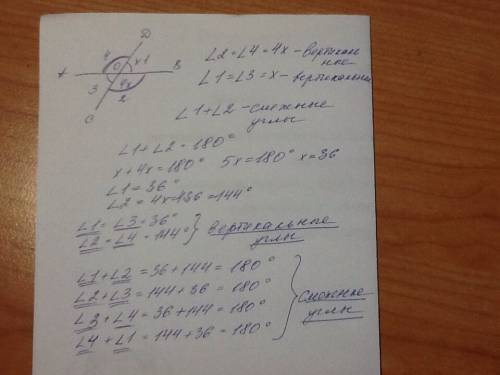 D
4 O x 1
A B
3 4x
2
C
∠2=∠4=4x-вертикаль
ные
∠1=∠3=x-вертикальные
∠1+∠2-смежные
углы
∠1+∠2=180°
x+4x=180° 5x=180° x=36
∠1=36°
∠2=4x=136=144°
∠1=∠3=36°
∠2=∠4=144° } вертикальные
углы
∠1+∠2=36+144=180°
∠2+∠3=144+36=180°
∠3+∠4=36+144=180°
∠4+∠1=144+36=180°
} смежные
углы